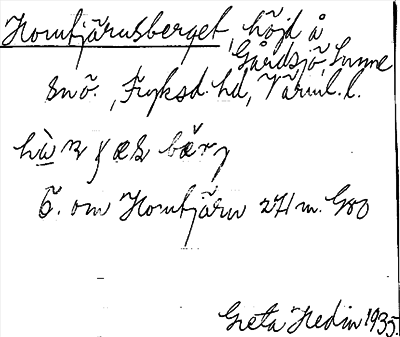 Horntjärnsberget, höjd å
Gårdsjö, Sunne
snö., Fryksd. hd, Värml. l.
Ö. om Horntjärn 271 m. G80
Greta Hedin 1935.